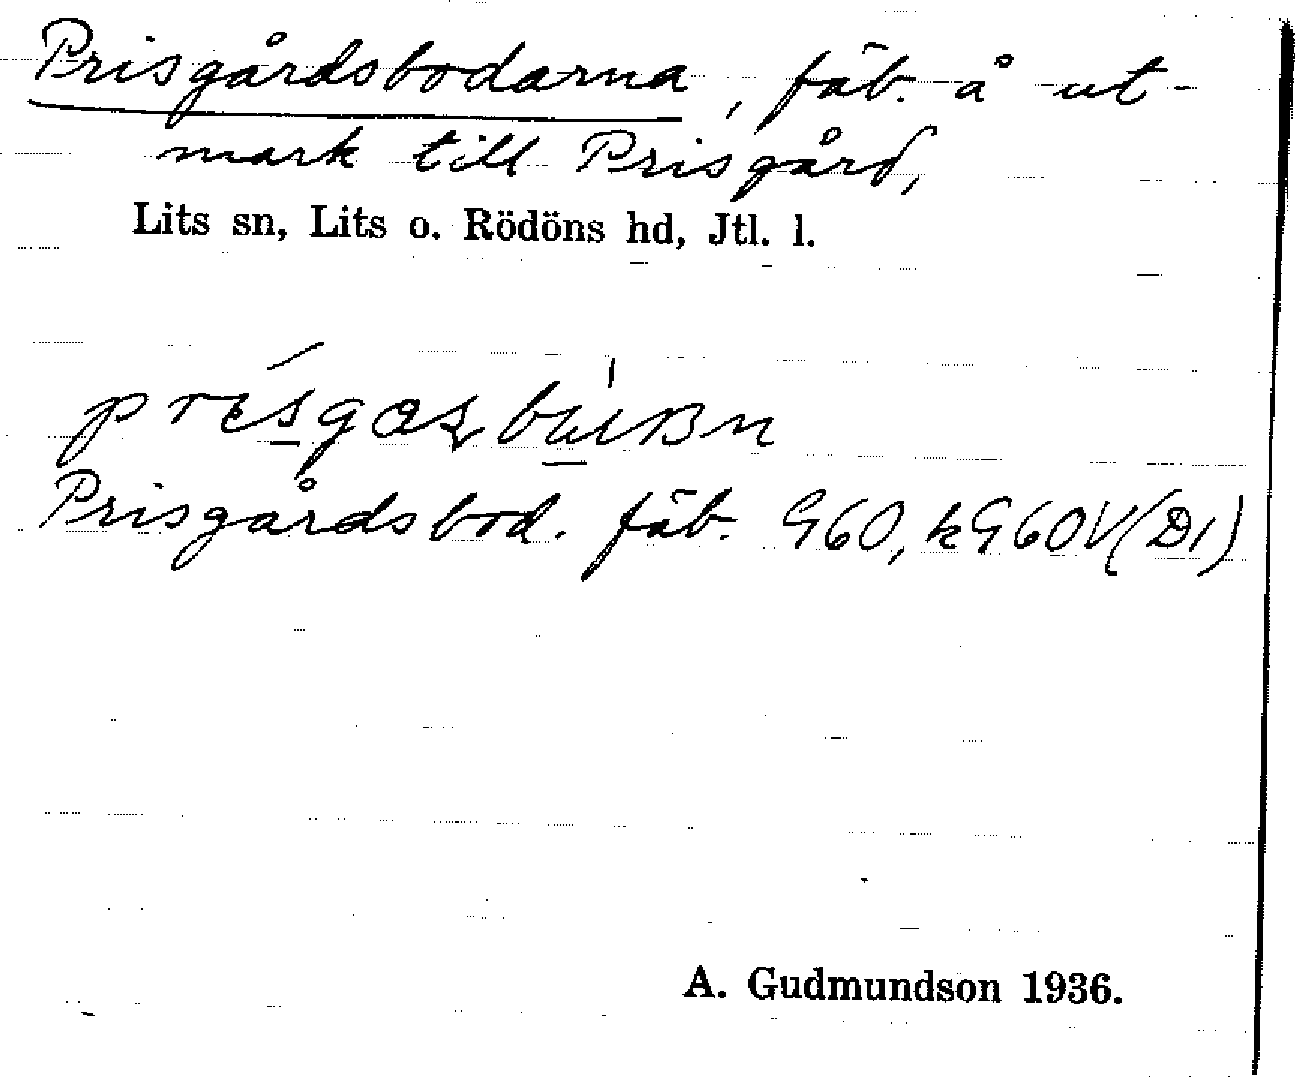 Prisgårdsbodarna, fäb. å ut-
mark till Prisgård,
Lits sn, Lits o. Rödöns hd, Jtl. l.
Prisgårdsbod. fäb. G60, kG60V(D1)
A. Gudmundson 1936.